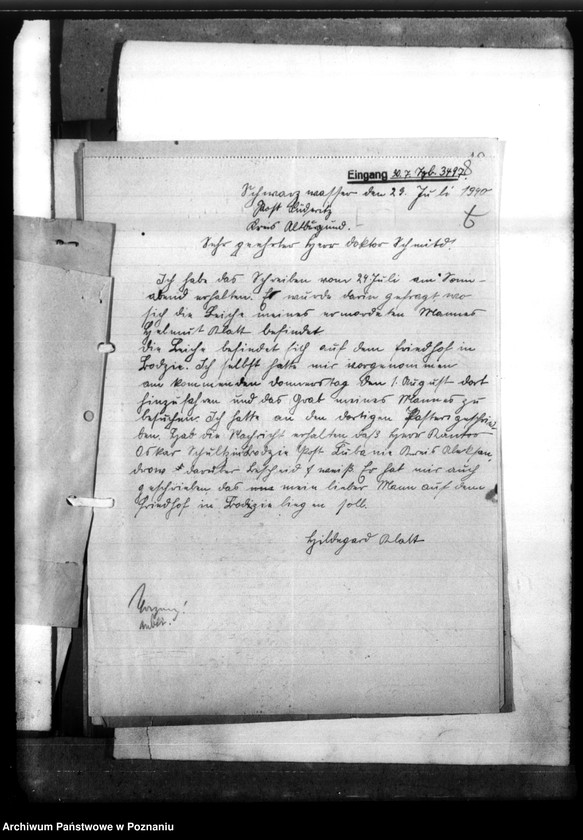 Eingang 30.7. Tgb. 3497
Schwarzwasser den 29. Juli 1940
Post Lüderitz
Kreis Altburgund.
Sehr geehrter Herr Doktor Schmitd!
Ich habe das Schreiben vom 24 Juli am Sonn-
abend erhalten. Es wurde darin gefragt wo
sich die Leiche meines ermordeten Mannes
Helmut Klatt befindet
die Leiche befindet sich auf dem Friedhof in
Brodzie. Ich selbst hatte mir vorgenommen
am kommenden Donnerstag den 1. August dort
hinzufahren und das Grab meines Mannes zu
besuchen. Ich hatte an den dortigen Paster geschrie-
ben. Hab die Nachricht erhalten daß Herr Kantor
Oskar Schultz in Brodzie Post Lubanie Kreis Aleksan
drow darüber bescheid weiß. Er hat mir auch
geschrieben das mein lieber Mann auf dem
Friedhof in Brodzie liegen soll.
Hildegard Klatt
Archiwum Państwowe w Poznaniu